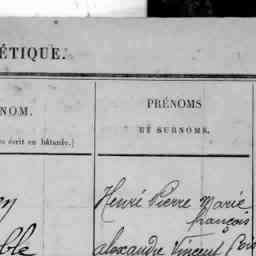 ÉTIQUE.
NOM.
PRÉNOMS
ET SURNOMS.
écrit en bâtarde.)
Henri Pierre Marie
françois
ble
alexandre Vincent